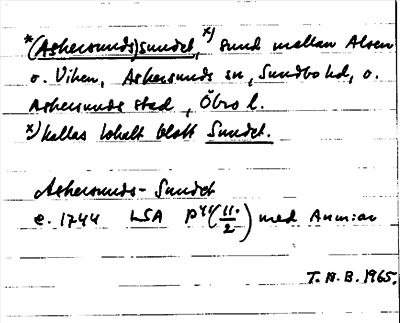 *(Askersunds)sundet, x) sund mellan Alsen
o. Viken, Askersunds sn, Sundbo hd, o.
Askersunds stad, Öbro l.
x) Kallas lokalt blott Sundet.
Askersunds-Sundet
e. 1744 LSA P44(11:/2) med Anm:ar
T.N.B. 1965.